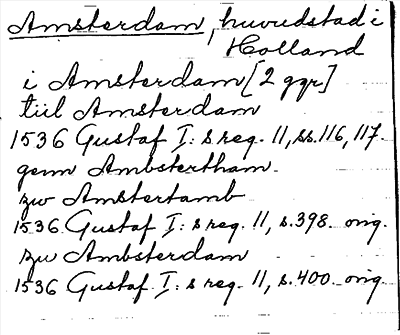 Amsterdam, huvudstad i
Holland
i Amsterdam [2 ggr]
tiil Amsterdam
1536 Gustaf I: s reg. 11, ss. 116, 117.
genn Ambstertham
zw Amstertamb
1536 Gustaf I: s reg. 11, s. 398 orig.
zu Ambsterdam
1536 Gustaf I: s reg. 11, s. 400 orig.